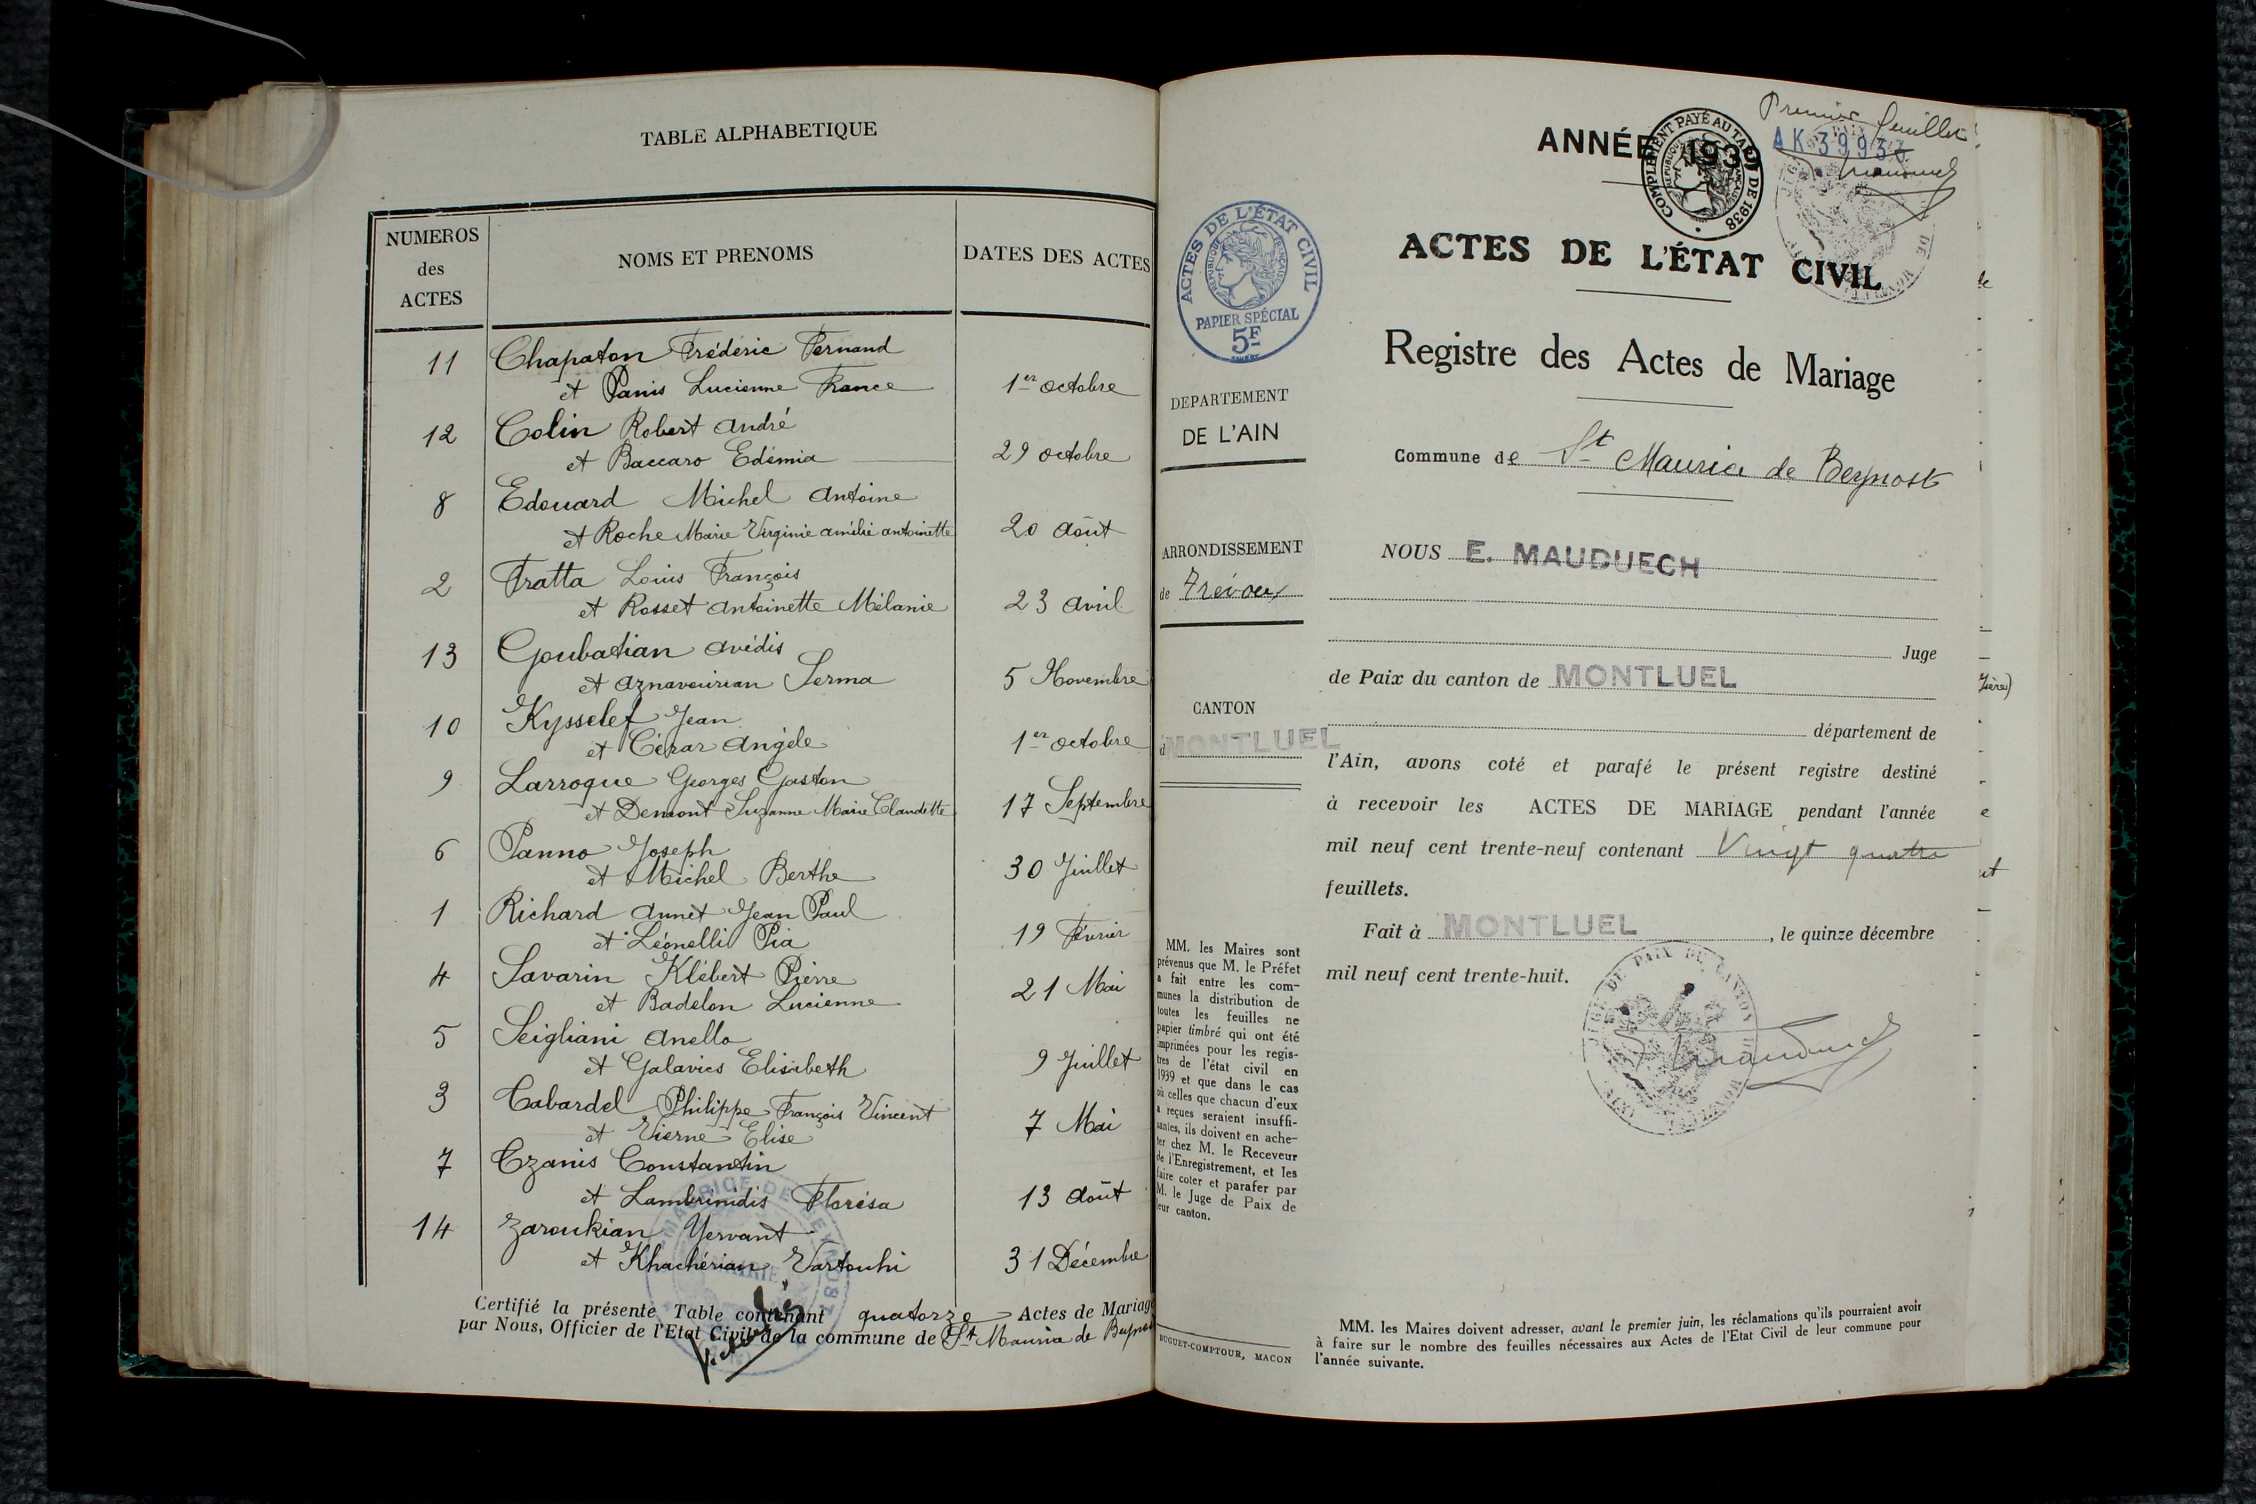 TABLE ALPHABETIQUE
NUMEROS
des
ACTES
NOMS ET PRENOMS
DATES DES ACTES
11 Chapaton Frédéric Fernand
et Panis Lucienne France 1er octobre
12 Colin Robert André
et Baccaro Edémia 29 octobre
8 Edouard Michel Antoine
et Roche Marie Virginie amélie antoinette 20 août
2 Fratta Louis François
et Rosset Antoinette Mélanie 23 avril
13 Goubatian Avédis
et Aznavourian Serma 5 Novembre
10 Kysselef Jean
et Cérar Angèle 1er octobre
9 Larroque Georges Gaston
et Demont Suzanne Marie Claudette 17 Septembre
6 Panno Joseph
et Michel Berthe 30 Juillet
1 Richard Annet Jean Paul
et Léonelli Pia 19 Février
4 Savarin Klébert Pierre
et Badelon Lucienne 21 Mai
5 Seigliani Anello
et Galavics Elisabeth 9 Juillet
3 Tabardel Philippe François Vincent
et Vierne Elise 7 Mai
7 Tzanis Constantin
et Lambrinidis Florésa 13 août
14 Zaroukian Yervant
et Khachérian Vartouhi 31 Décembre
Certifié la présente Table contenant quatorze Actes de Mariage
par Nous, Officier de l'Etat Civil de la commune de St Maurice de Beynost
Premier feuillet
ANNÉE 193
COMPLEMENT PAYÉ AU TARIF DE 1938
AK 3993
ACTES DE L'ÉTAT CIVIL
ACTES DE L'ÉTAT CIVIL
REPUBLIQUE FRANÇAISE
PAPIER SPÉCIAL
5F
Registre des Actes de Mariage
DEPARTEMENT
DE L'AIN
Commune de St Maurice de Beynost
ARRONDISSEMENT
de Trévoux
NOUS E. MAUDUECH
Juge
de Paix du canton de MONTLUEL
CANTON
d MONTLUEL
département de
l'Ain, avons coté et parafé le présent registre destiné
à recevoir les ACTES DE MARIAGE pendant l'année
mil neuf cent trente-neuf contenant Vingt quatre
feuillets.
Fait à MONTLUEL, le quinze décembre
mil neuf cent trente-huit.
MM. les Maires sont
prévenus que M. le Préfet
a fait entre les com-
munes la distribution de
toutes les feuilles ne
papier timbré qui ont été
imprimées pour les regis-
tres de l'état civil en
1939 et que dans le cas
où celles que chacun d'eux
a reçues seraient insuffi-
santes, ils doivent en ache-
ter chez M. le Receveur
de l'Enregistrement, et les
faire coter et parafer par
M. le Juge de Paix de
leur canton.
BUGUET-COMPTOUR, MACON
MM. les Maires doivent adresser, avant le premier juin, les réclamations qu'ils pourraient avoir
à faire sur le nombre des feuilles nécessaires aux Actes de l'Etat Civil de leur commune pour
l'année suivante.